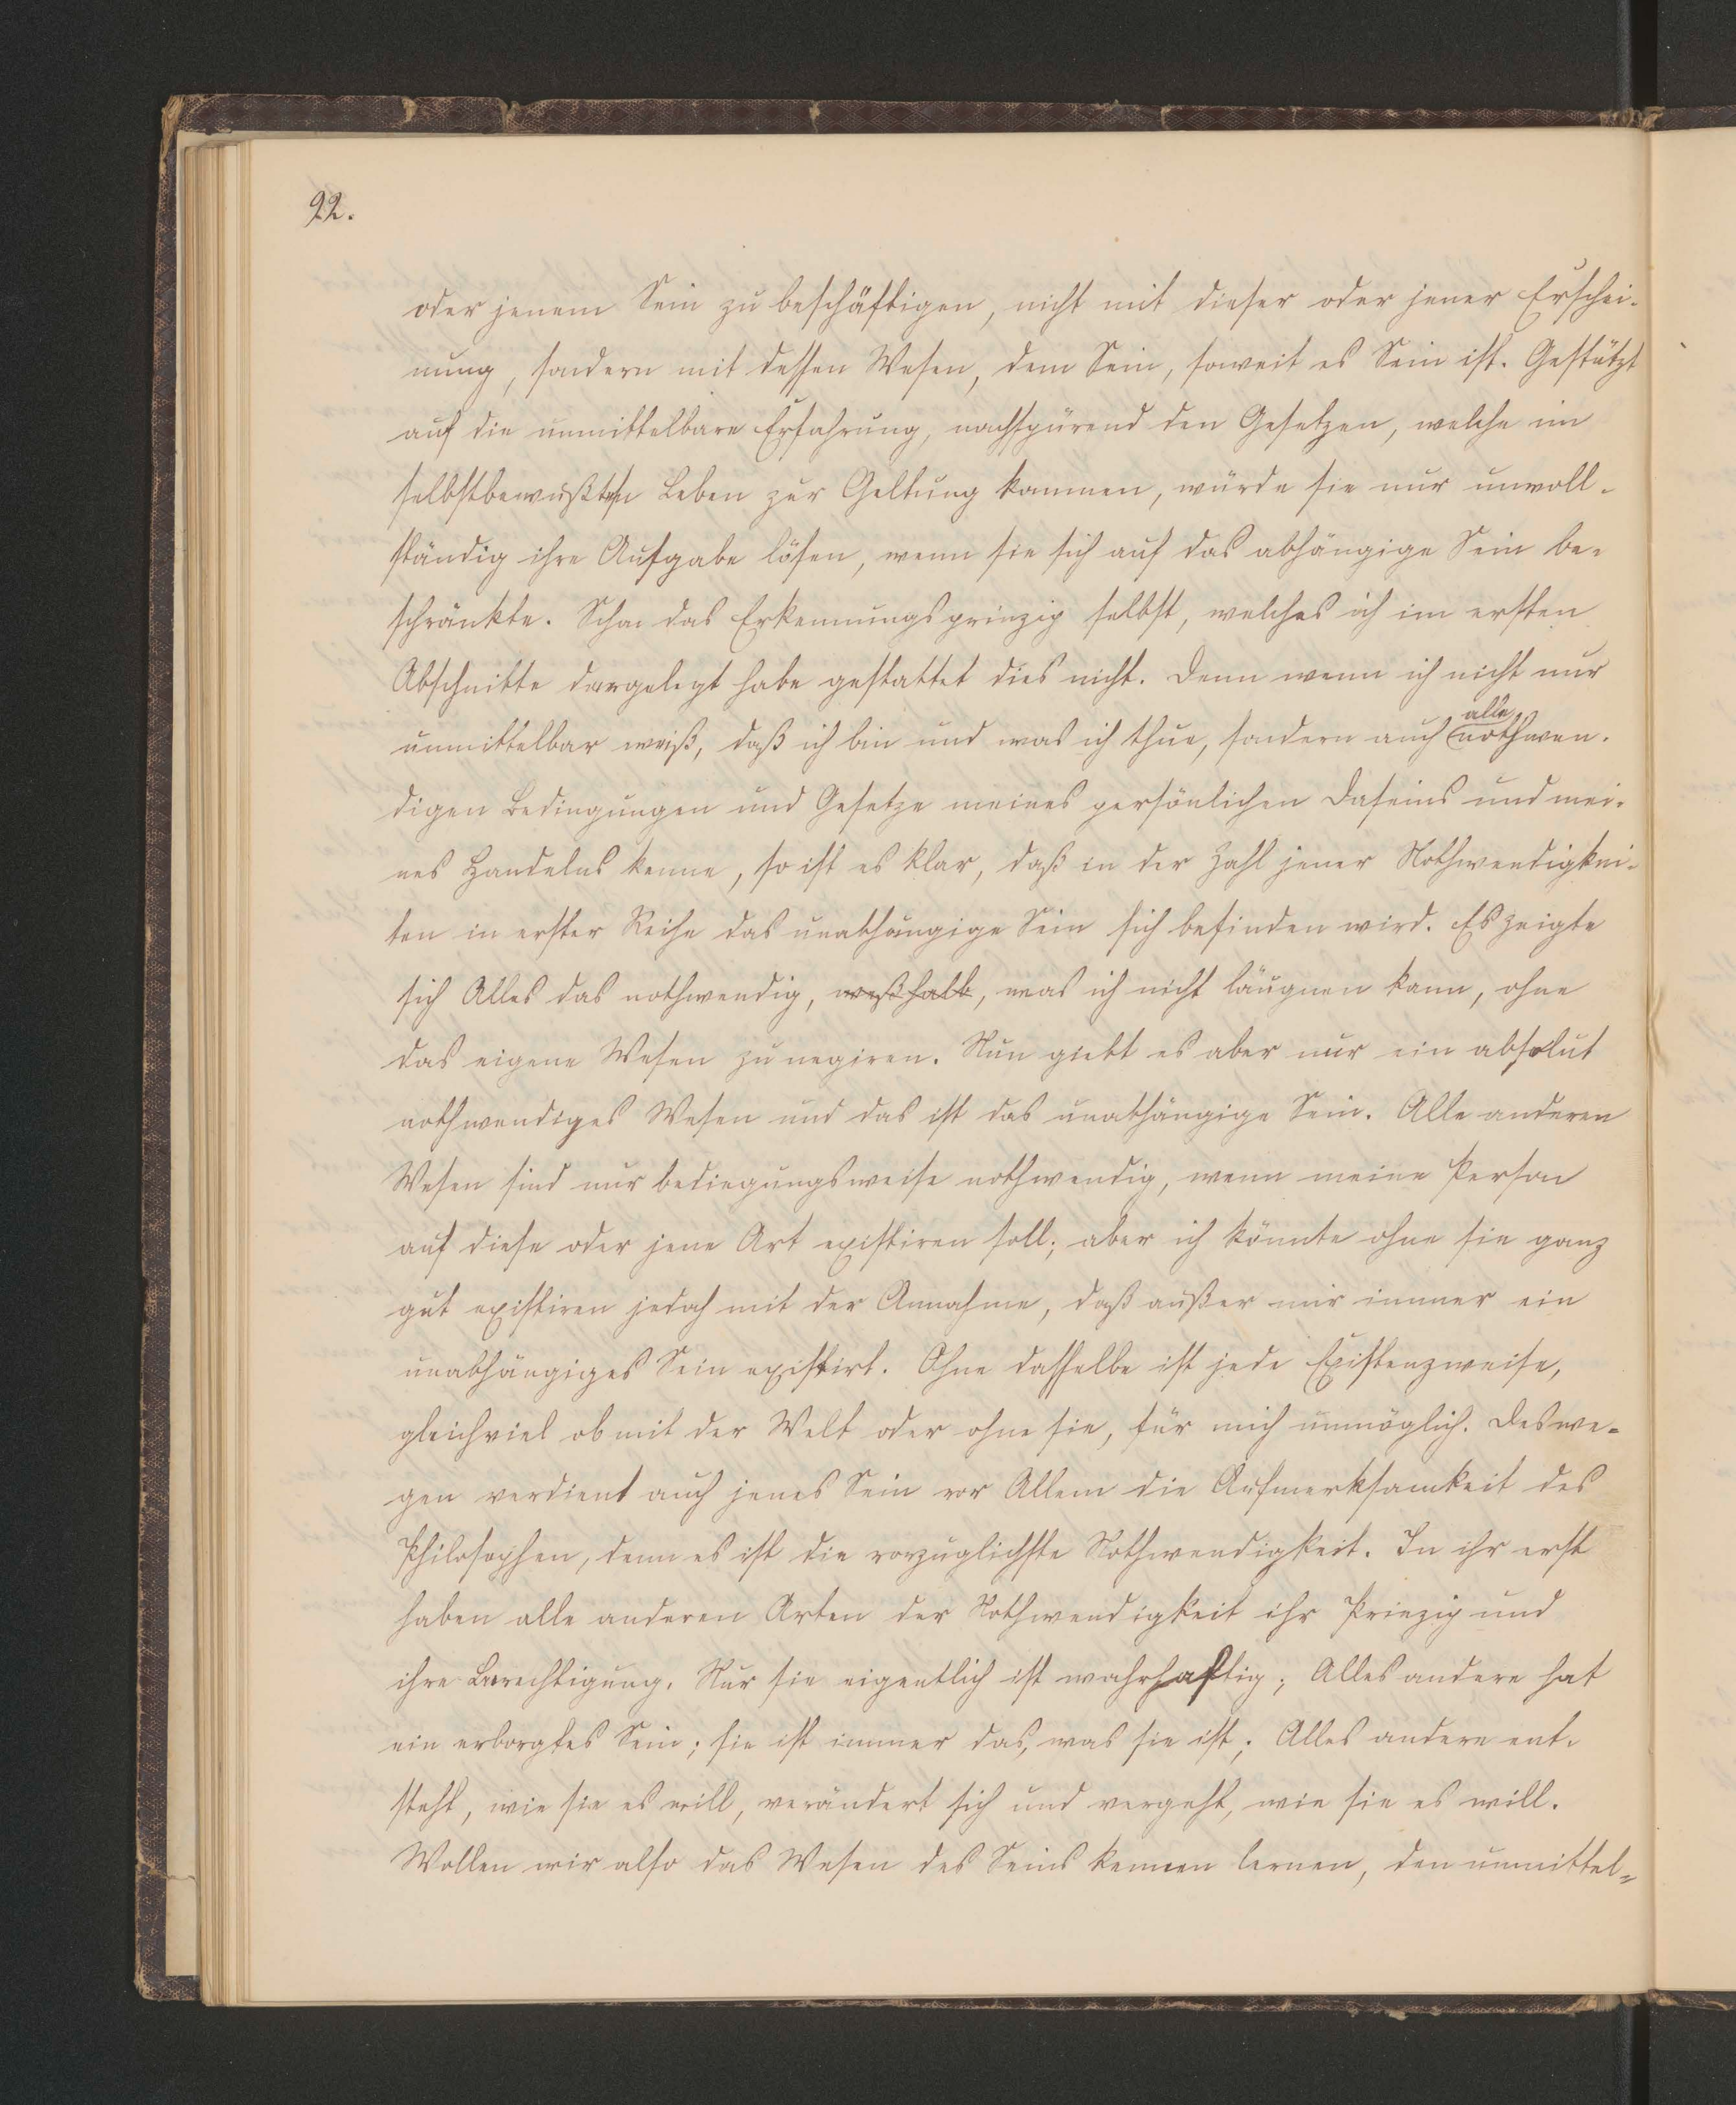 92.
oder jenem Sein zu beschäftigen, nicht mit dieser oder jener Erschei-
nung, sondern mit dessen Wesen, dem Sein, soweit es Sein ist. Gestützt
auf die unmittelbare Erfahrung, nachspürend den Gesetzen, welche im
selbstbewußten Leben zur Geltung kommen, würde sie nur unvoll-
ständig ihre Aufgabe lösen, wenn sie sich auf das abhängige Sein be-
schränkte. Schon das Erkennungsprinzip selbst, welches ich im ersten
Abschnitte dargelegt habe gestattet dies nicht. Denn wenn ich nicht nur
alle
unmittelbar weiß, daß ich bin und was ich thue, sondern auch nothwen-
digen Bedingungen und Gesetze meines persönlichen Daseins und mei-
nes Handelns kenne, so ist es klar, daß in der Zahl jener Nothwendigkei-
ten in erster Reihe das unabhängige Sein sich befinden wird. Es zeigte
sich Alles das nothwendig, weßhalb, was ich nicht läugnen kann, ohne
das eigene Wesen zu negiren. Nun giebt es aber nur ein absolut
nothwendiges Wesen und das ist das unabhängige Sein. Alle anderen
Wesen sind nur bedingungsweise nothwendig, wenn meine Person
auf diese oder jene Art existiren soll; aber ich könnte ohne sie ganz
gut existiren jedoch mit der Annahme, daß außer mir immer ein
unabhängiges Sein existirt. Ohne dasselbe ist jede Existenzweise,
gleichviel ob mit der Welt oder ohne sie, für mich unmöglich. Deswe-
gen verdient auch jenes Sein vor Allem die Aufmerksamkeit des
Philosophen, denn es ist die vorzuglichste Nothwendigkeit. In ihr erst
haben alle anderen Arten der Nothwendigkeit ihr Prinzip und
ihre Berechtigung. Nur sie eigentlich ist wahrhaftig; Alles andere hat
ein erborgtes Sein; sie ist immer das, was sie ist; Alles andere ent-
steht, wie sie es will, verändert sich und vergeht, wie sie es will.
Wollen wir also das Wesen des Seins kennen lernen, den unmittel-